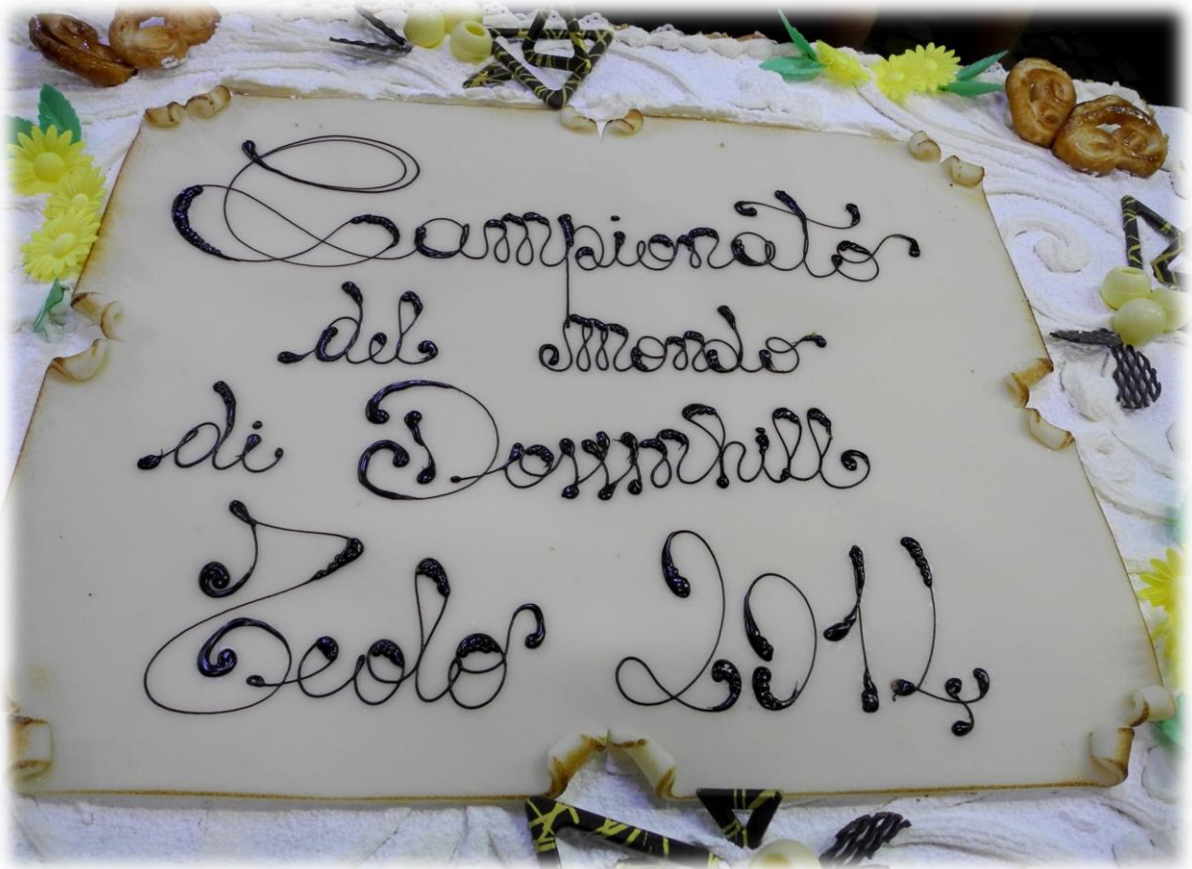 Campionato
del Mondo
di Downhill
Teolo 2014